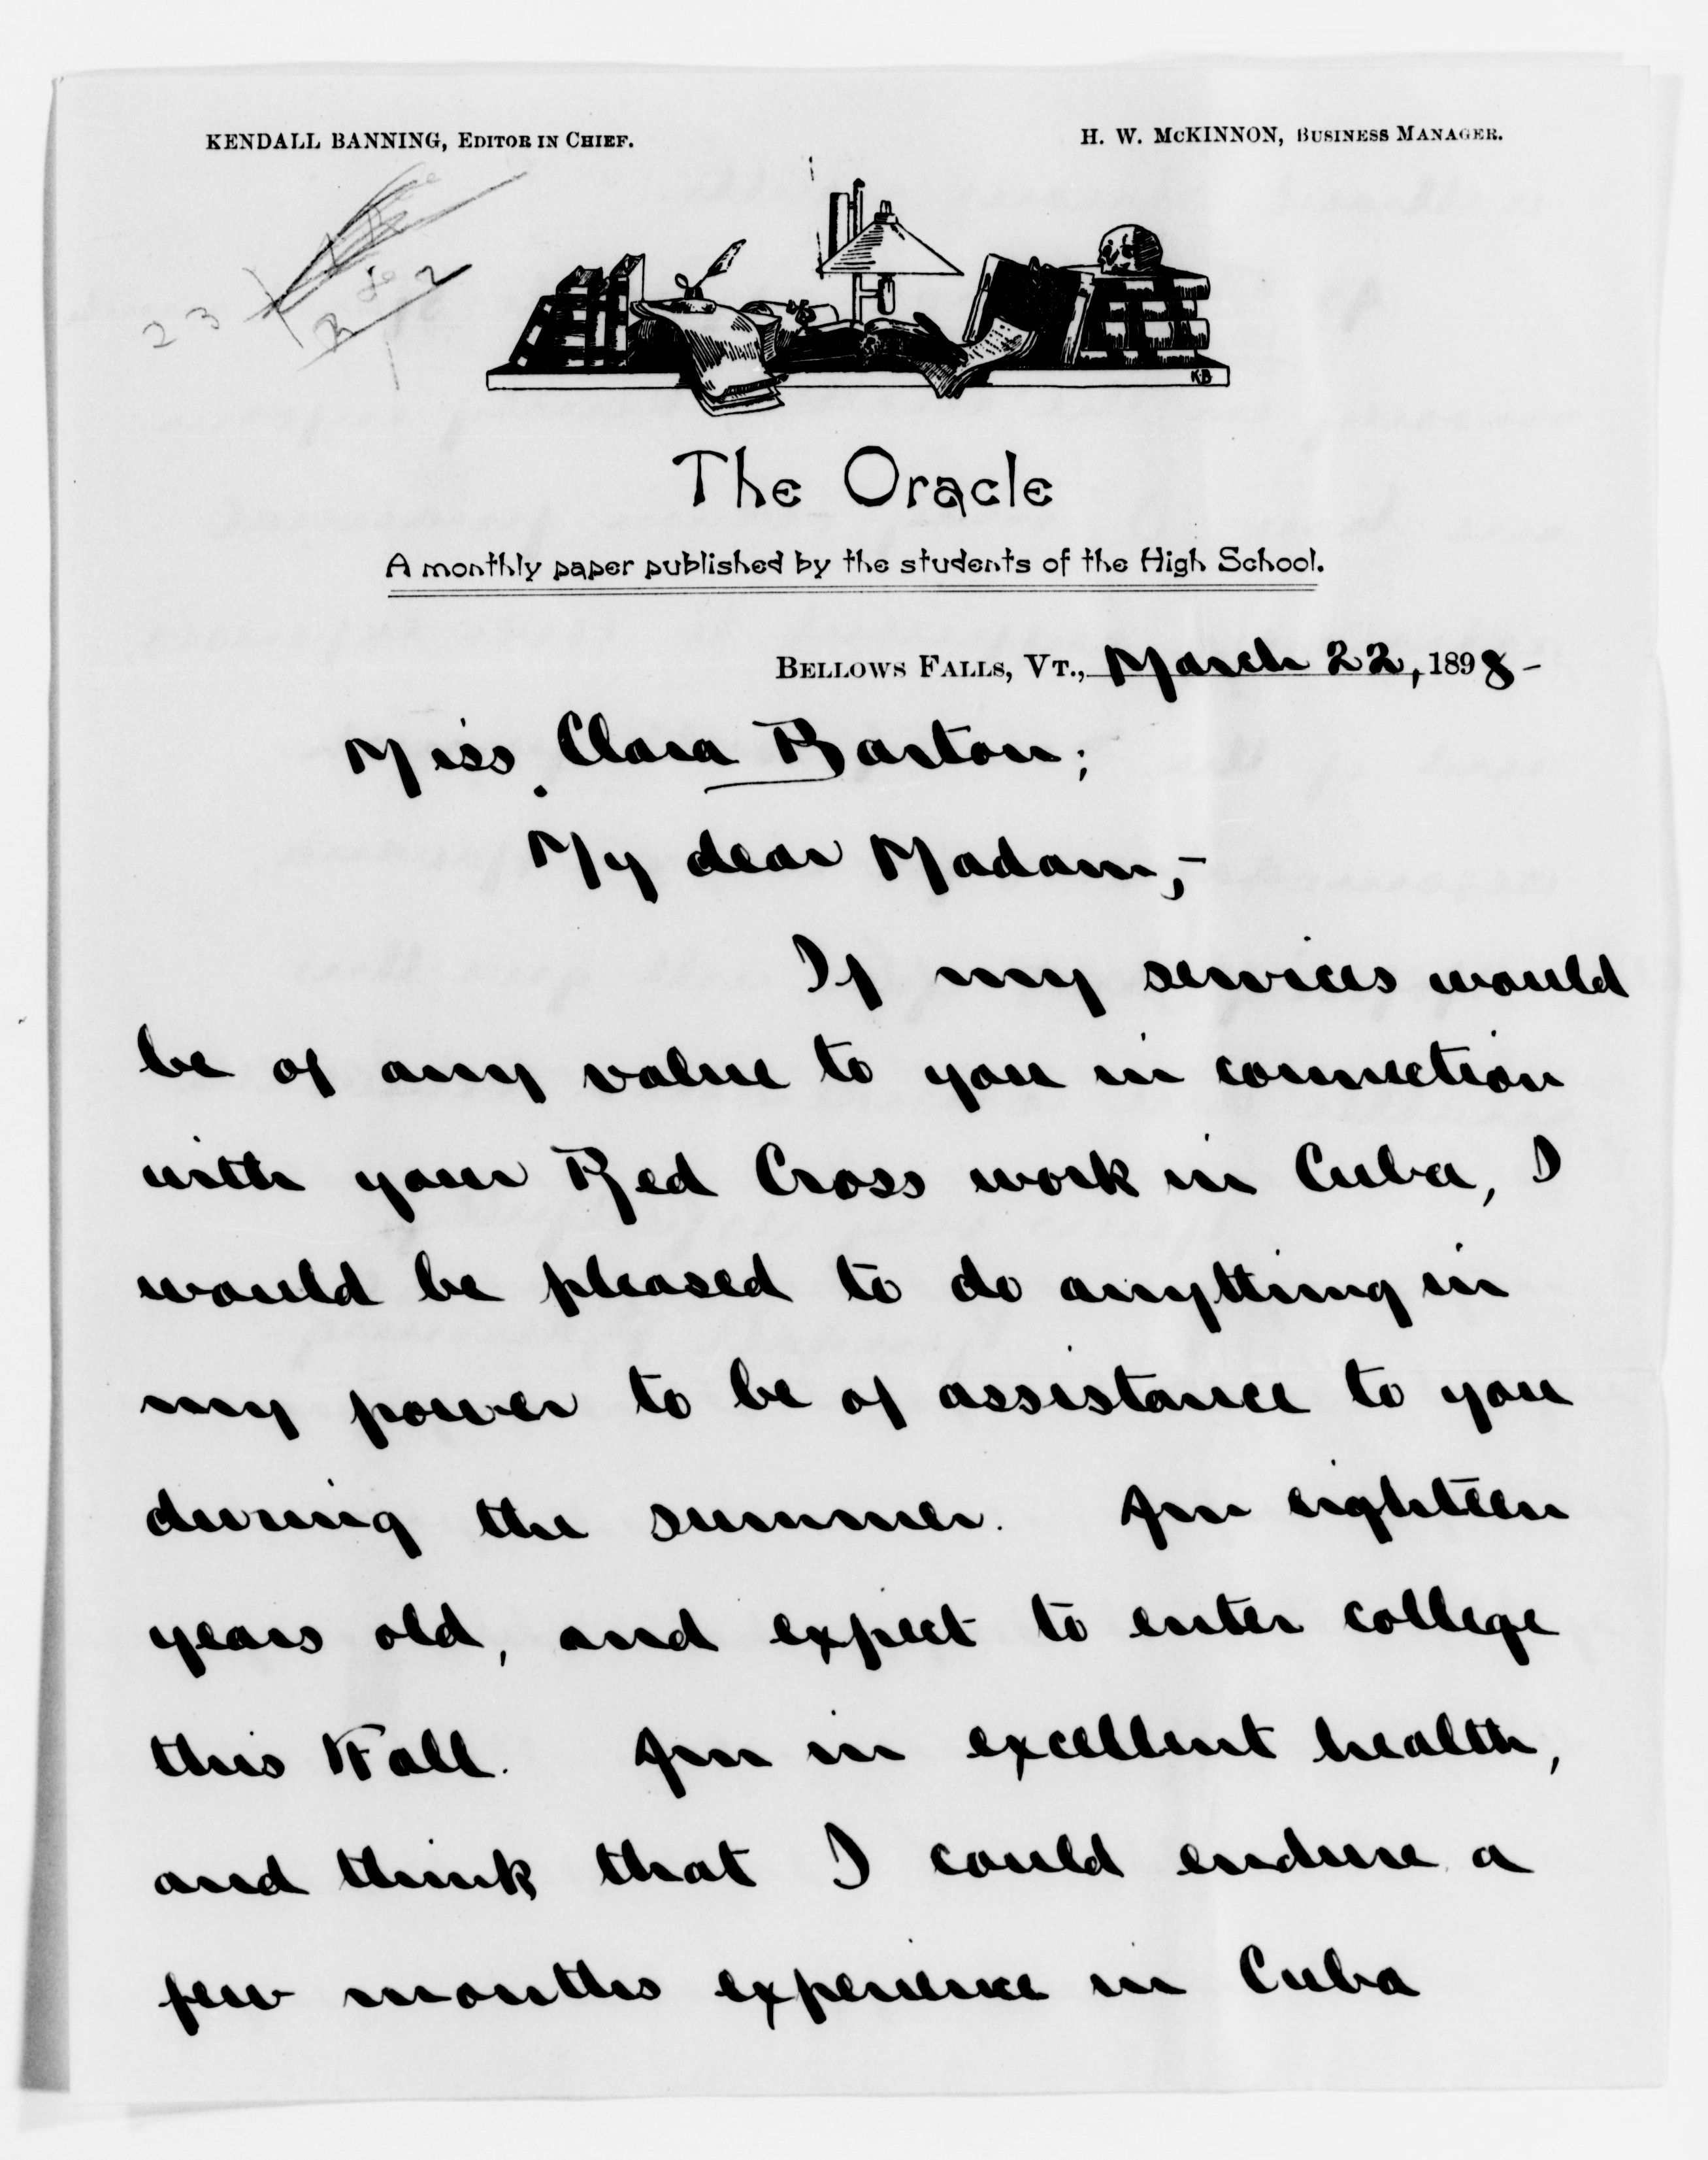 KENDALL BANNING, EDITOR IN CHIEF.
H. W. McKINNON, BUSINESS MANAGER.
23
2
KB
The Oracle
A monthly paper published by the students of the High School.
BELLOWS FALLS, VT., March 22, 1898-
Miss Clara Barton;
My dear Madam,-
If my services would
be of any value to you in connection
with your Red Cross work in Cuba, I
would be pleased to do anything in
my power to be of assistance to you
during the summer. Am eighteen
years old, and expect to enter college
this Fall. Am in excellent health,
and think that I could endure a
few months experience in Cuba